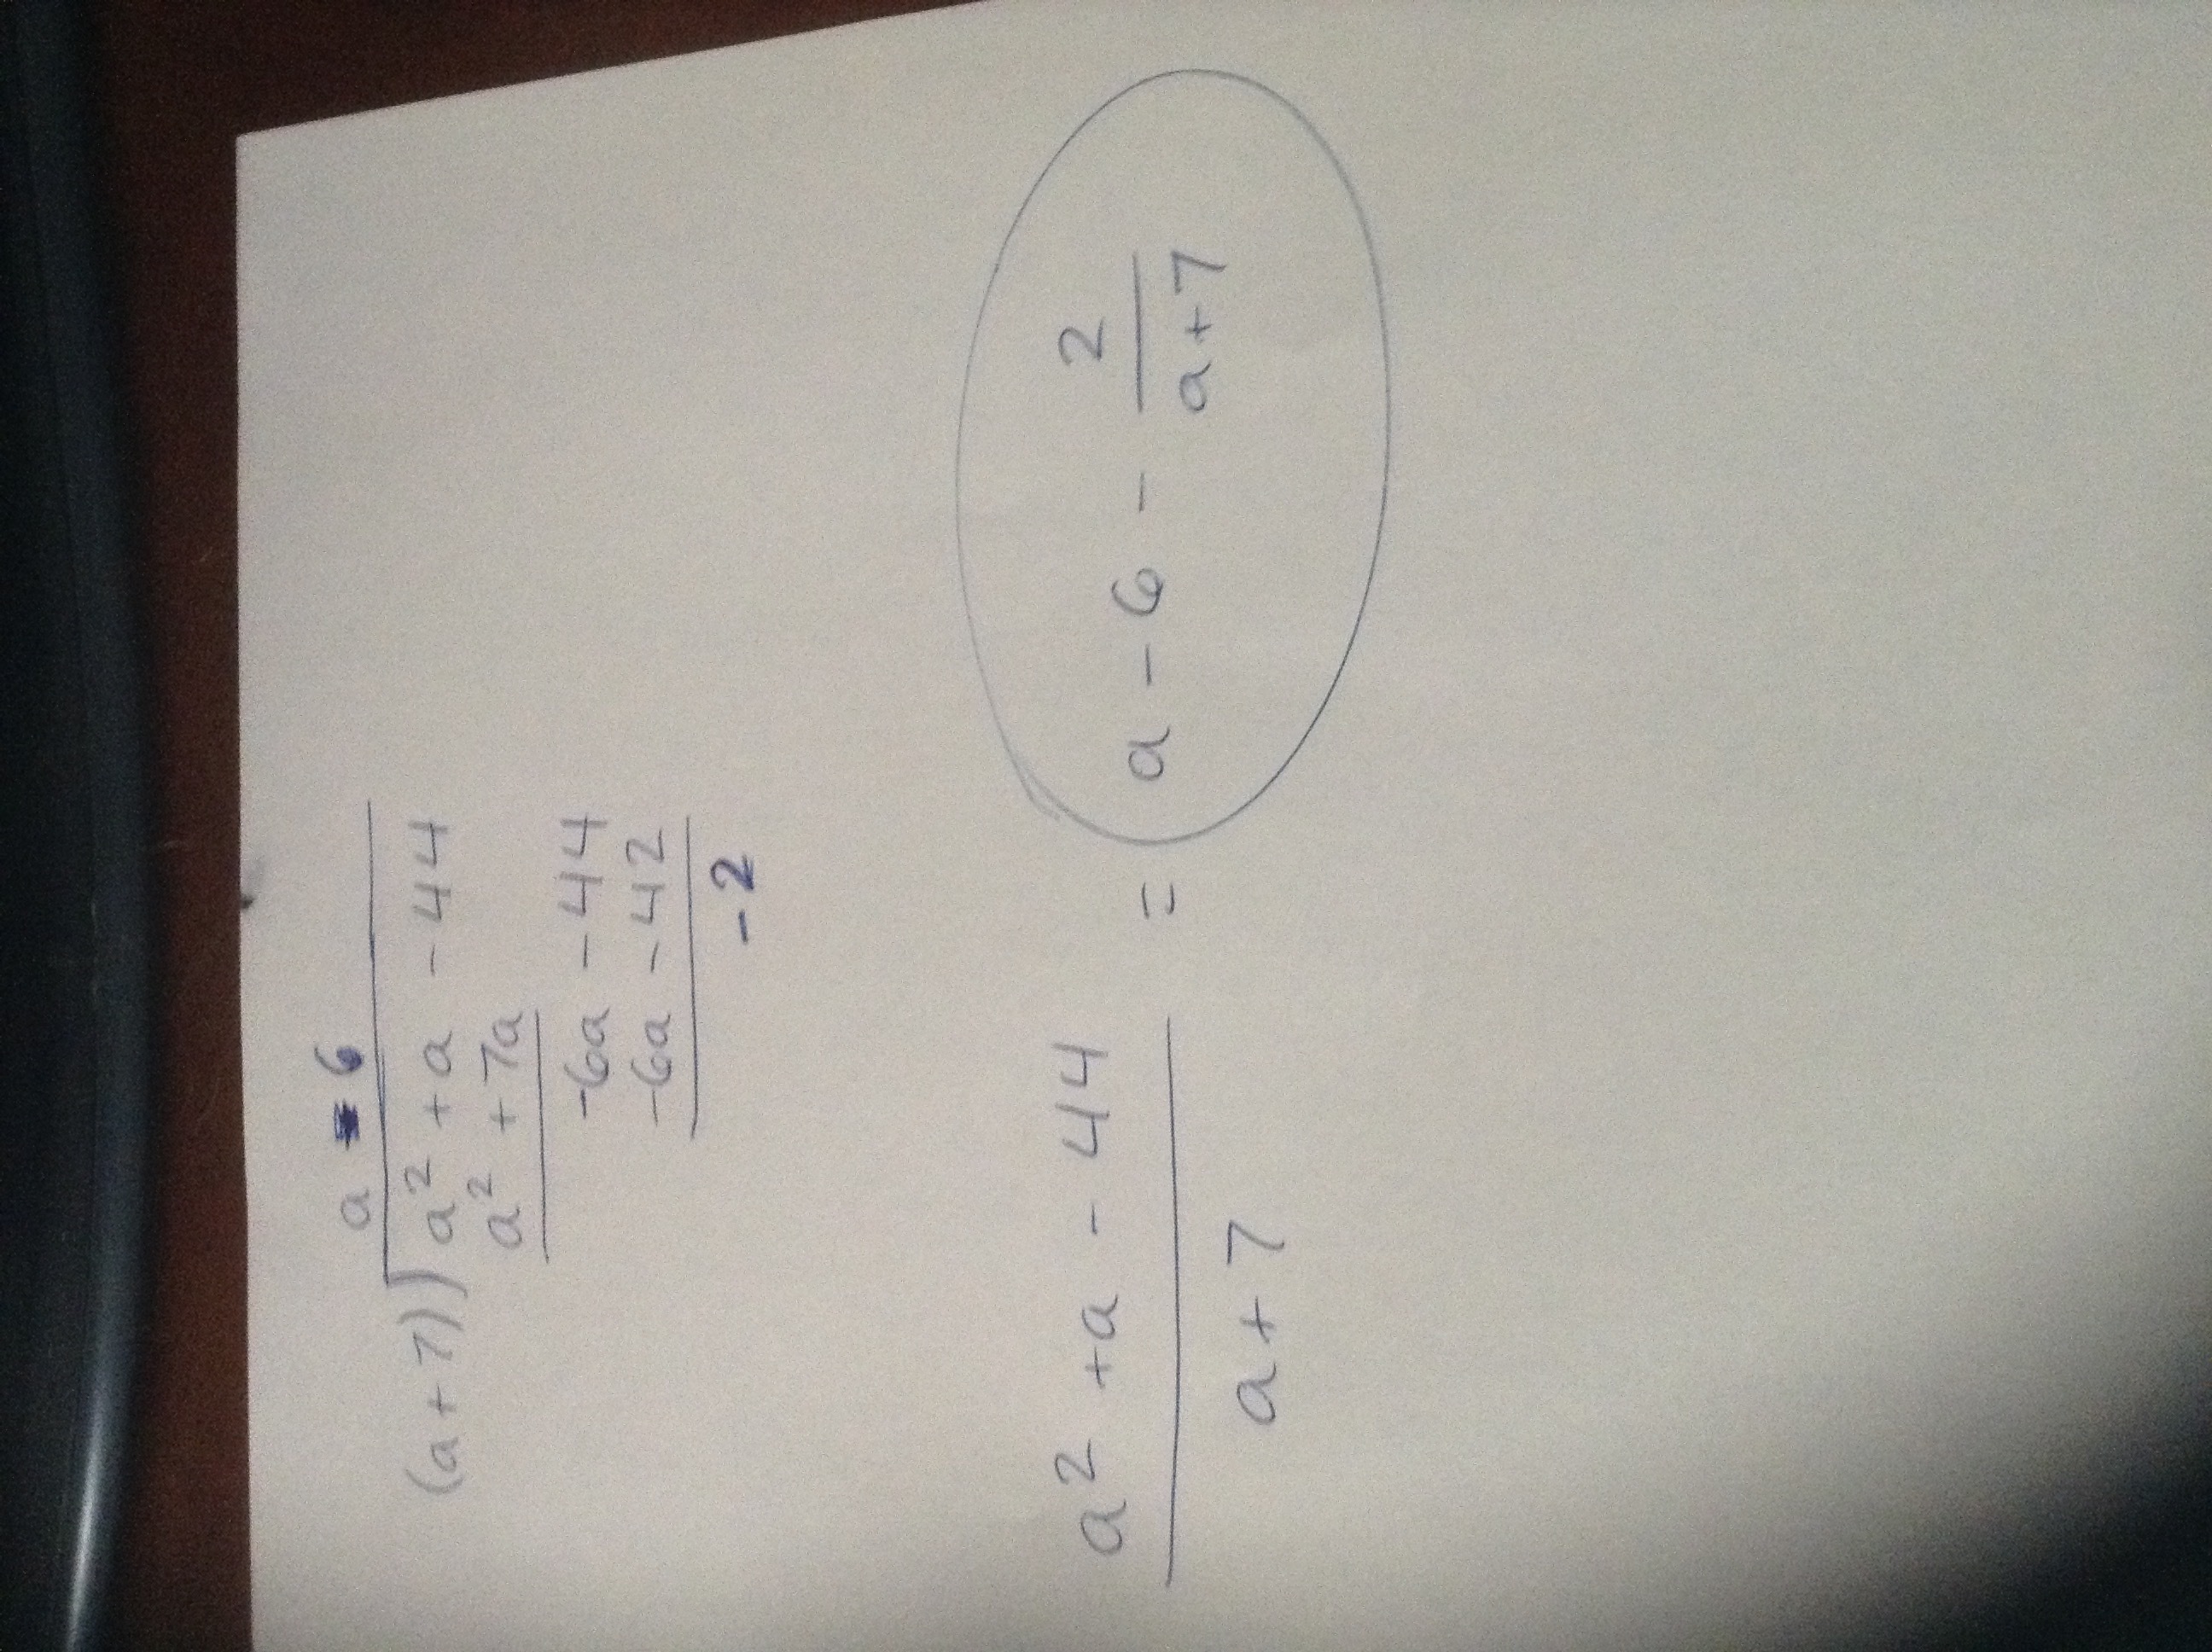 a - 6
(a+7)) a² + a - 44
a² + 7a
-6a - 44
-6a - 42
-2
a² + a - 44 / a + 7 = a - 6 - 2 / a+7